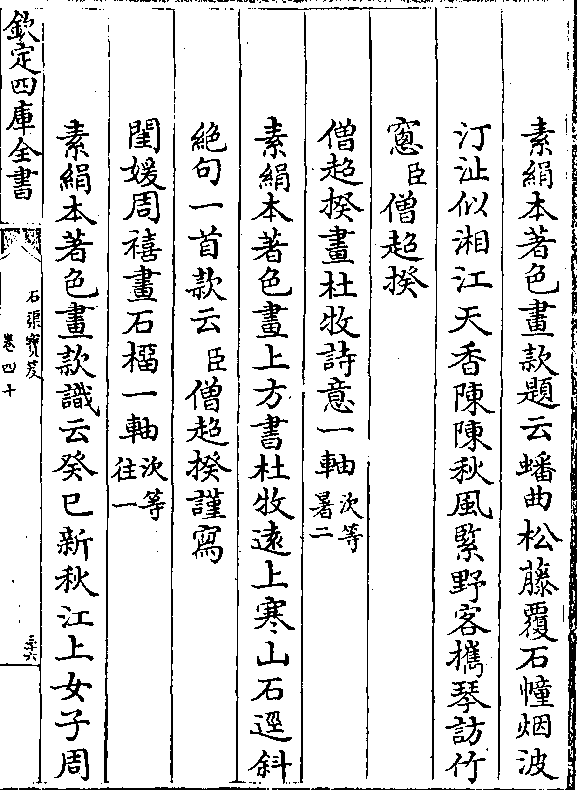 素絹本著色畫款題云蟠曲松藤覆石幢烟波
汀沚似湘江天香陳陳秋風緊野客攜琴訪竹
窻臣僧超揆
僧超揆畫杜牧詩意一軸次等暑二
素絹本著色畫上方書杜牧遠上寒山石逕斜
絶句一首款云臣僧超揆謹寫
閨媛周禧畫石榴一軸次等往一
素絹本著色畫款識云癸巳新秋江上女子周
欽定四庫全書
石渠寶笈
卷四十
三六